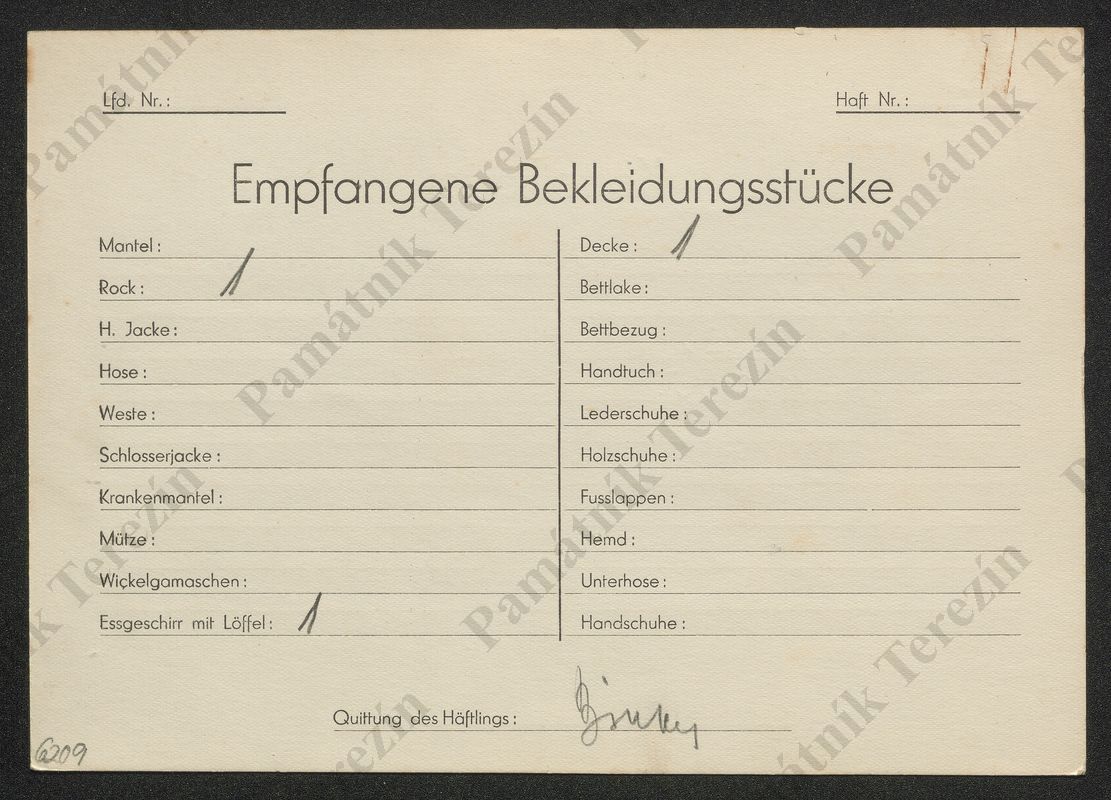 Lfd. Nr.:
Haft Nr.:
Empfangene Bekleidungsstücke
Mantel:
Rock: 1
H. Jacke:
Hose:
Weste:
Schlosserjacke:
Krankenmantel:
Mütze:
Wickelgamaschen:
Essgeschirr mit Löffel: 1
Decke: 1
Bettlake:
Bettbezug:
Handtuch:
Lederschuhe:
Holzschuhe:
Fusslappen:
Hemd:
Unterhose:
Handschuhe:
Quittung des Häftlings:
6209
Památník Terezín